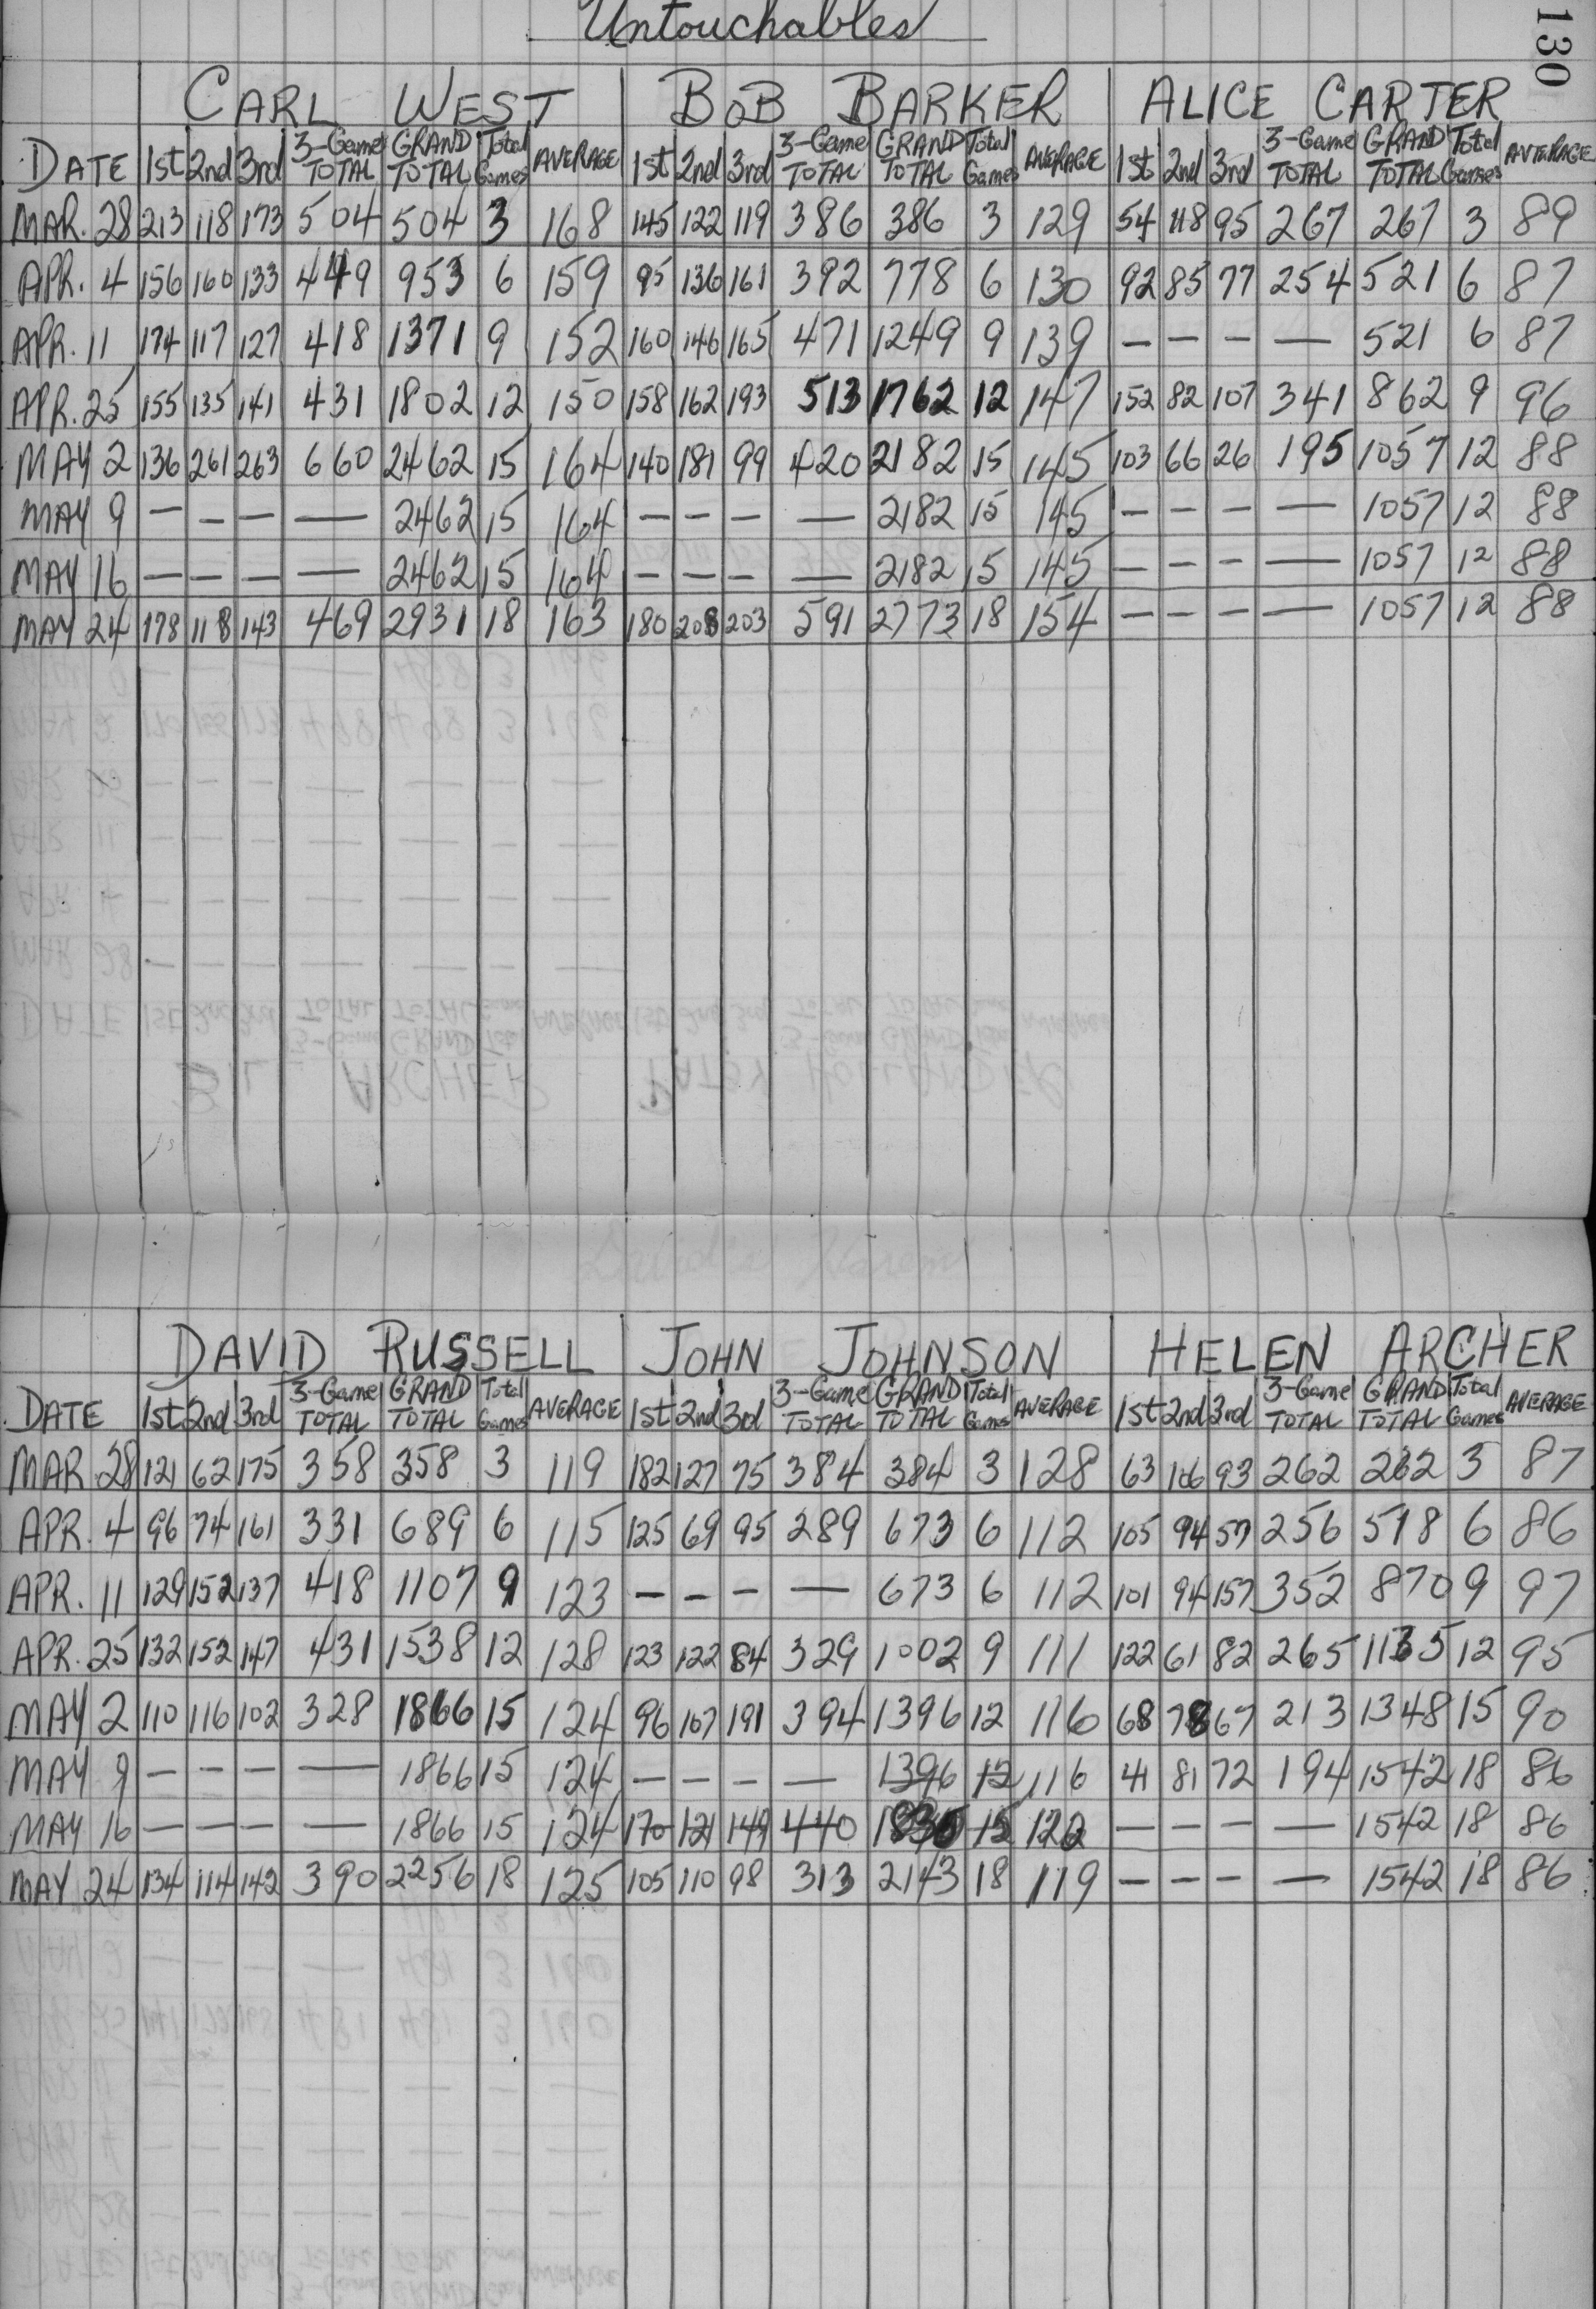 Untouchables
130
CARL WEST BOB BARKER ALICE CARTER
DATE 1st 2nd 3rd 3-Game TOTAL GRAND TOTAL Total Games AVERAGE 1st 2nd 3rd 3-Game TOTAL GRAND TOTAL Total Games AVERAGE 1st 2nd 3rd 3-Game TOTAL GRAND TOTAL Total Games AVERAGE
MAR. 28 213 118 173 504 504 3 168 145 122 119 386 386 3 129 54 118 95 267 267 3 89
APR. 4 156 160 133 449 953 6 159 95 136 161 392 778 6 130 92 85 77 254 521 6 87
APR. 11 174 117 127 418 1371 9 152 160 146 165 471 1249 9 139 — — — — 521 6 87
APR. 25 155 135 141 431 1802 12 150 158 162 193 513 1762 12 147 152 82 107 341 862 9 96
MAY 2 136 261 263 660 2462 15 164 140 181 99 420 2182 15 145 103 66 26 195 1057 12 88
MAY 9 — — — — 2462 15 164 — — — — 2182 15 145 — — — — 1057 12 88
MAY 16 — — — — 2462 15 164 — — — — 2182 15 145 — — — — 1057 12 88
MAY 24 178 118 143 469 2931 18 163 180 208 203 591 2773 18 154 — — — — 1057 12 88
DAVID RUSSELL JOHN JOHNSON HELEN ARCHER
DATE 1st 2nd 3rd 3-Game TOTAL GRAND TOTAL Total Games AVERAGE 1st 2nd 3rd 3-Game TOTAL GRAND TOTAL Total Games AVERAGE 1st 2nd 3rd 3-Game TOTAL GRAND TOTAL Total Games AVERAGE
MAR 28 121 62 175 358 358 3 119 182 127 75 384 384 3 128 63 106 93 262 262 3 87
APR. 4 96 74 161 331 689 6 115 125 69 95 289 673 6 112 105 94 57 256 518 6 86
APR. 11 129 152 137 418 1107 9 123 — — — — 673 6 112 101 94 157 352 870 9 97
APR. 25 132 152 147 431 1538 12 128 123 122 84 329 1002 9 111 122 61 82 265 1135 12 95
MAY 2 110 116 102 328 1866 15 124 96 107 191 394 1396 12 116 68 78 67 213 1348 15 90
MAY 9 — — — — 1866 15 124 — — — — 1396 12 116 41 81 72 194 1542 18 86
MAY 16 — — — — 1866 15 124 170 121 149 440 15 122 — — — — 1542 18 86
MAY 24 134 114 142 390 2256 18 125 105 110 98 313 2143 18 119 — — — — 1542 18 86